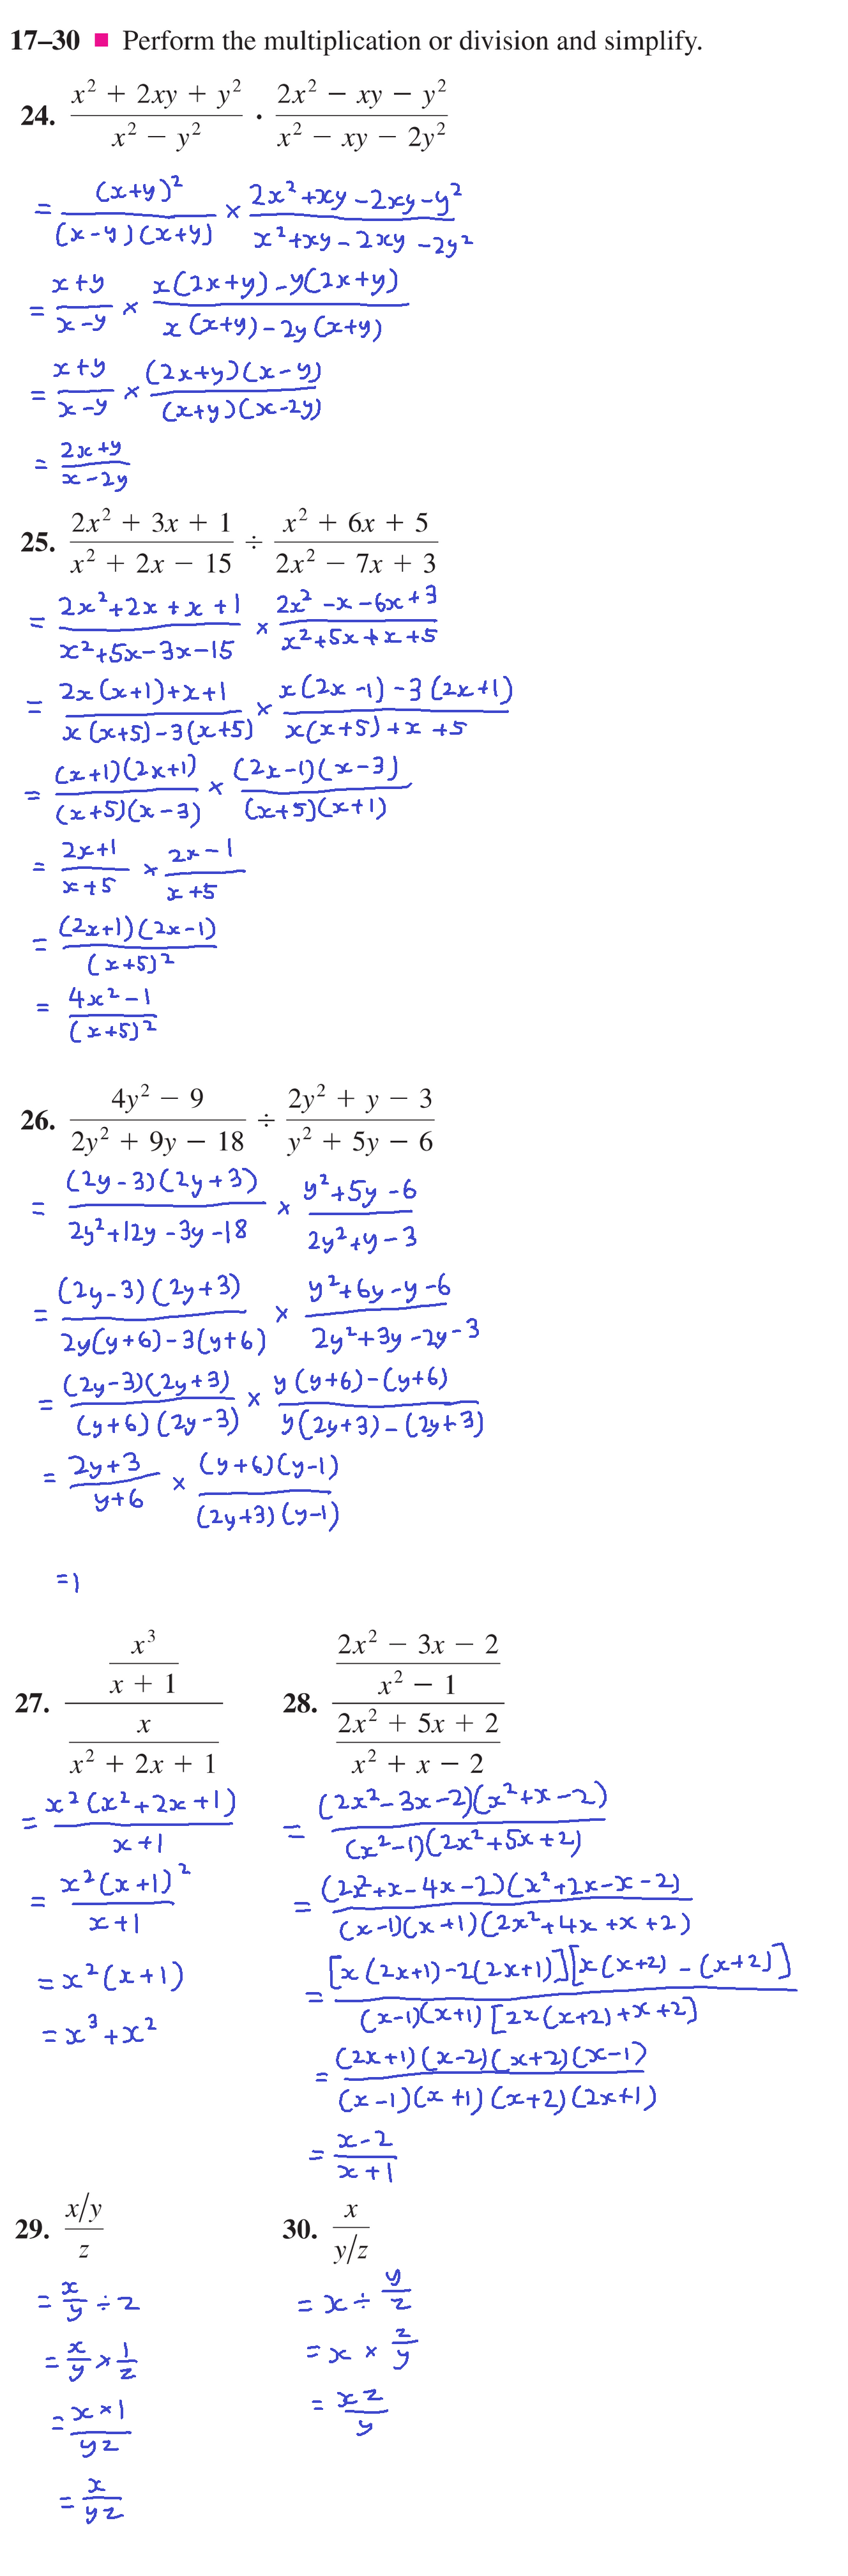 17–30 ■ Perform the multiplication or division and simplify.
24. (x² + 2xy + y²)/(x² − y²) · (2x² − xy − y²)/(x² − xy − 2y²)
= (x+y)²/((x−y)(x+y)) × (2x²+xy−2xy−y²)/(x²+xy−2xy−2y²)
= (x+y)/(x−y) × (x(2x+y)−y(2x+y))/(x(x+y)−2y(x+y))
= (x+y)/(x−y) × ((2x+y)(x−y))/((x+y)(x−2y))
= (2x+y)/(x−2y)
25. (2x² + 3x + 1)/(x² + 2x − 15) ÷ (x² + 6x + 5)/(2x² − 7x + 3)
= (2x²+2x+x+1)/(x²+5x−3x−15) × (2x²−x−6x+3)/(x²+5x+x+5)
= (2x(x+1)+x+1)/(x(x+5)−3(x+5)) × (x(2x−1)−3(2x+1))/(x(x+5)+x+5)
= ((x+1)(2x+1))/((x+5)(x−3)) × ((2x−1)(x−3))/((x+5)(x+1))
= (2x+1)/(x+5) × (2x−1)/(x+5)
= ((2x+1)(2x−1))/(x+5)²
= (4x²−1)/(x+5)²
26. (4y² − 9)/(2y² + 9y − 18) ÷ (2y² + y − 3)/(y² + 5y − 6)
= ((2y−3)(2y+3))/(2y²+12y−3y−18) × (y²+5y−6)/(2y²+y−3)
= ((2y−3)(2y+3))/(2y(y+6)−3(y+6)) × (y²+6y−y−6)/(2y²+3y−2y−3)
= ((2y−3)(2y+3))/((y+6)(2y−3)) × (y(y+6)−(y+6))/(y(2y+3)−(2y+3))
= (2y+3)/(y+6) × ((y+6)(y−1))/((2y+3)(y−1))
=1
27. (x³/(x + 1))/(x/(x² + 2x + 1))
= (x²(x²+2x+1))/(x+1)
= (x²(x+1)²)/(x+1)
= x²(x+1)
= x³+x²
28. ((2x² − 3x − 2)/(x² − 1))/((2x² + 5x + 2)/(x² + x − 2))
= ((2x²−3x−2)(x²+x−2))/((x²−1)(2x²+5x+2))
= ((2x²+x−4x−2)(x²+2x−x−2))/((x−1)(x+1)(2x²+4x+x+2))
= ([x(2x+1)−2(2x+1)][x(x+2)−(x+2)])/((x−1)(x+1)[2x(x+2)+x+2])
= ((2x+1)(x−2)(x+2)(x−1))/((x−1)(x+1)(x+2)(2x+1))
= (x−2)/(x+1)
29. (x/y)/z
= x/y ÷ z
= x/y × 1/z
= (x×1)/(yz)
= x/(yz)
30. x/(y/z)
= x ÷ y/z
= x × z/y
= xz/y